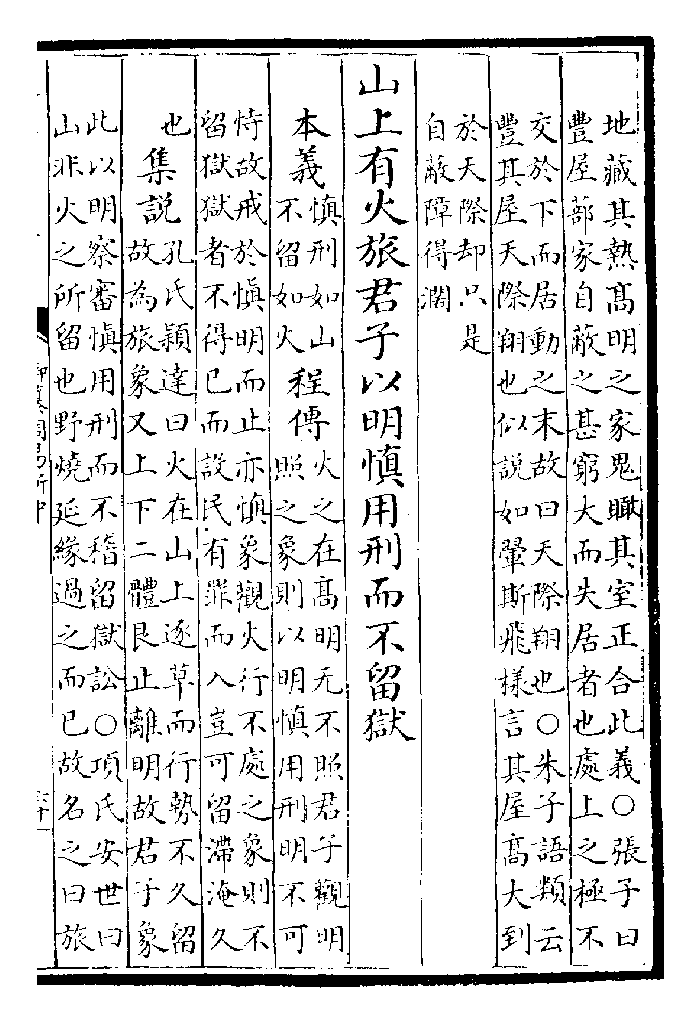 地藏其熱髙明之家鬼瞰其室正合此義○張子曰
豐屋蔀家自蔽之甚窮大而失居者也處上之極不
交於下而居動之末故曰天際翔也○朱子語類云
豐其屋天際翔也似說如翬斯飛樣言其屋髙大到
於天際却只是
自蔽障得濶
山上有火旅君子以明慎用刑而不留獄
本義
慎刑如山
不留如火
程傳
火之在髙明无不照君子觀明
照之象則以明慎用刑明不可
恃故戒於慎明而止亦慎象觀火行不處之象則不
留獄獄者不得已而設民有罪而入豈可留滯淹久
也
集說
孔氏穎達曰火在山上逐草而行勢不久留
故為旅象又上下二體艮止離明故君子象
此以明察審慎用刑而不稽留獄訟○項氏安世曰
山非火之所留也野燒延緣過之而已故名之曰旅
御纂周易折中